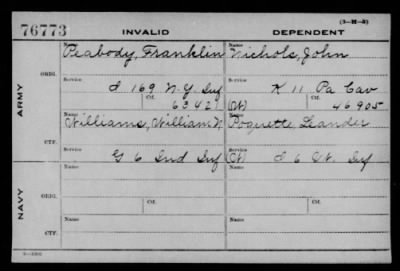 76773
INVALID DEPENDENT
(3-H-5)
ARMY
ORIG.
Name
Peabody, Franklin
Name
Nichols, John
Service
I 169 N.Y. Inf
Service
K 11 Pa Cav
Ctf.
63421
Ctf.
46905
(Ot)
CTF.
Name
Williams, William W.
Name
Poquette Leander
Service
G 6 Ind Inf
Service
(Ct) I 6 Vt. Inf
NAVY
ORIG.
Name
Name
Service
Ctf.
Service
Ctf.
CTF.
Name
Name